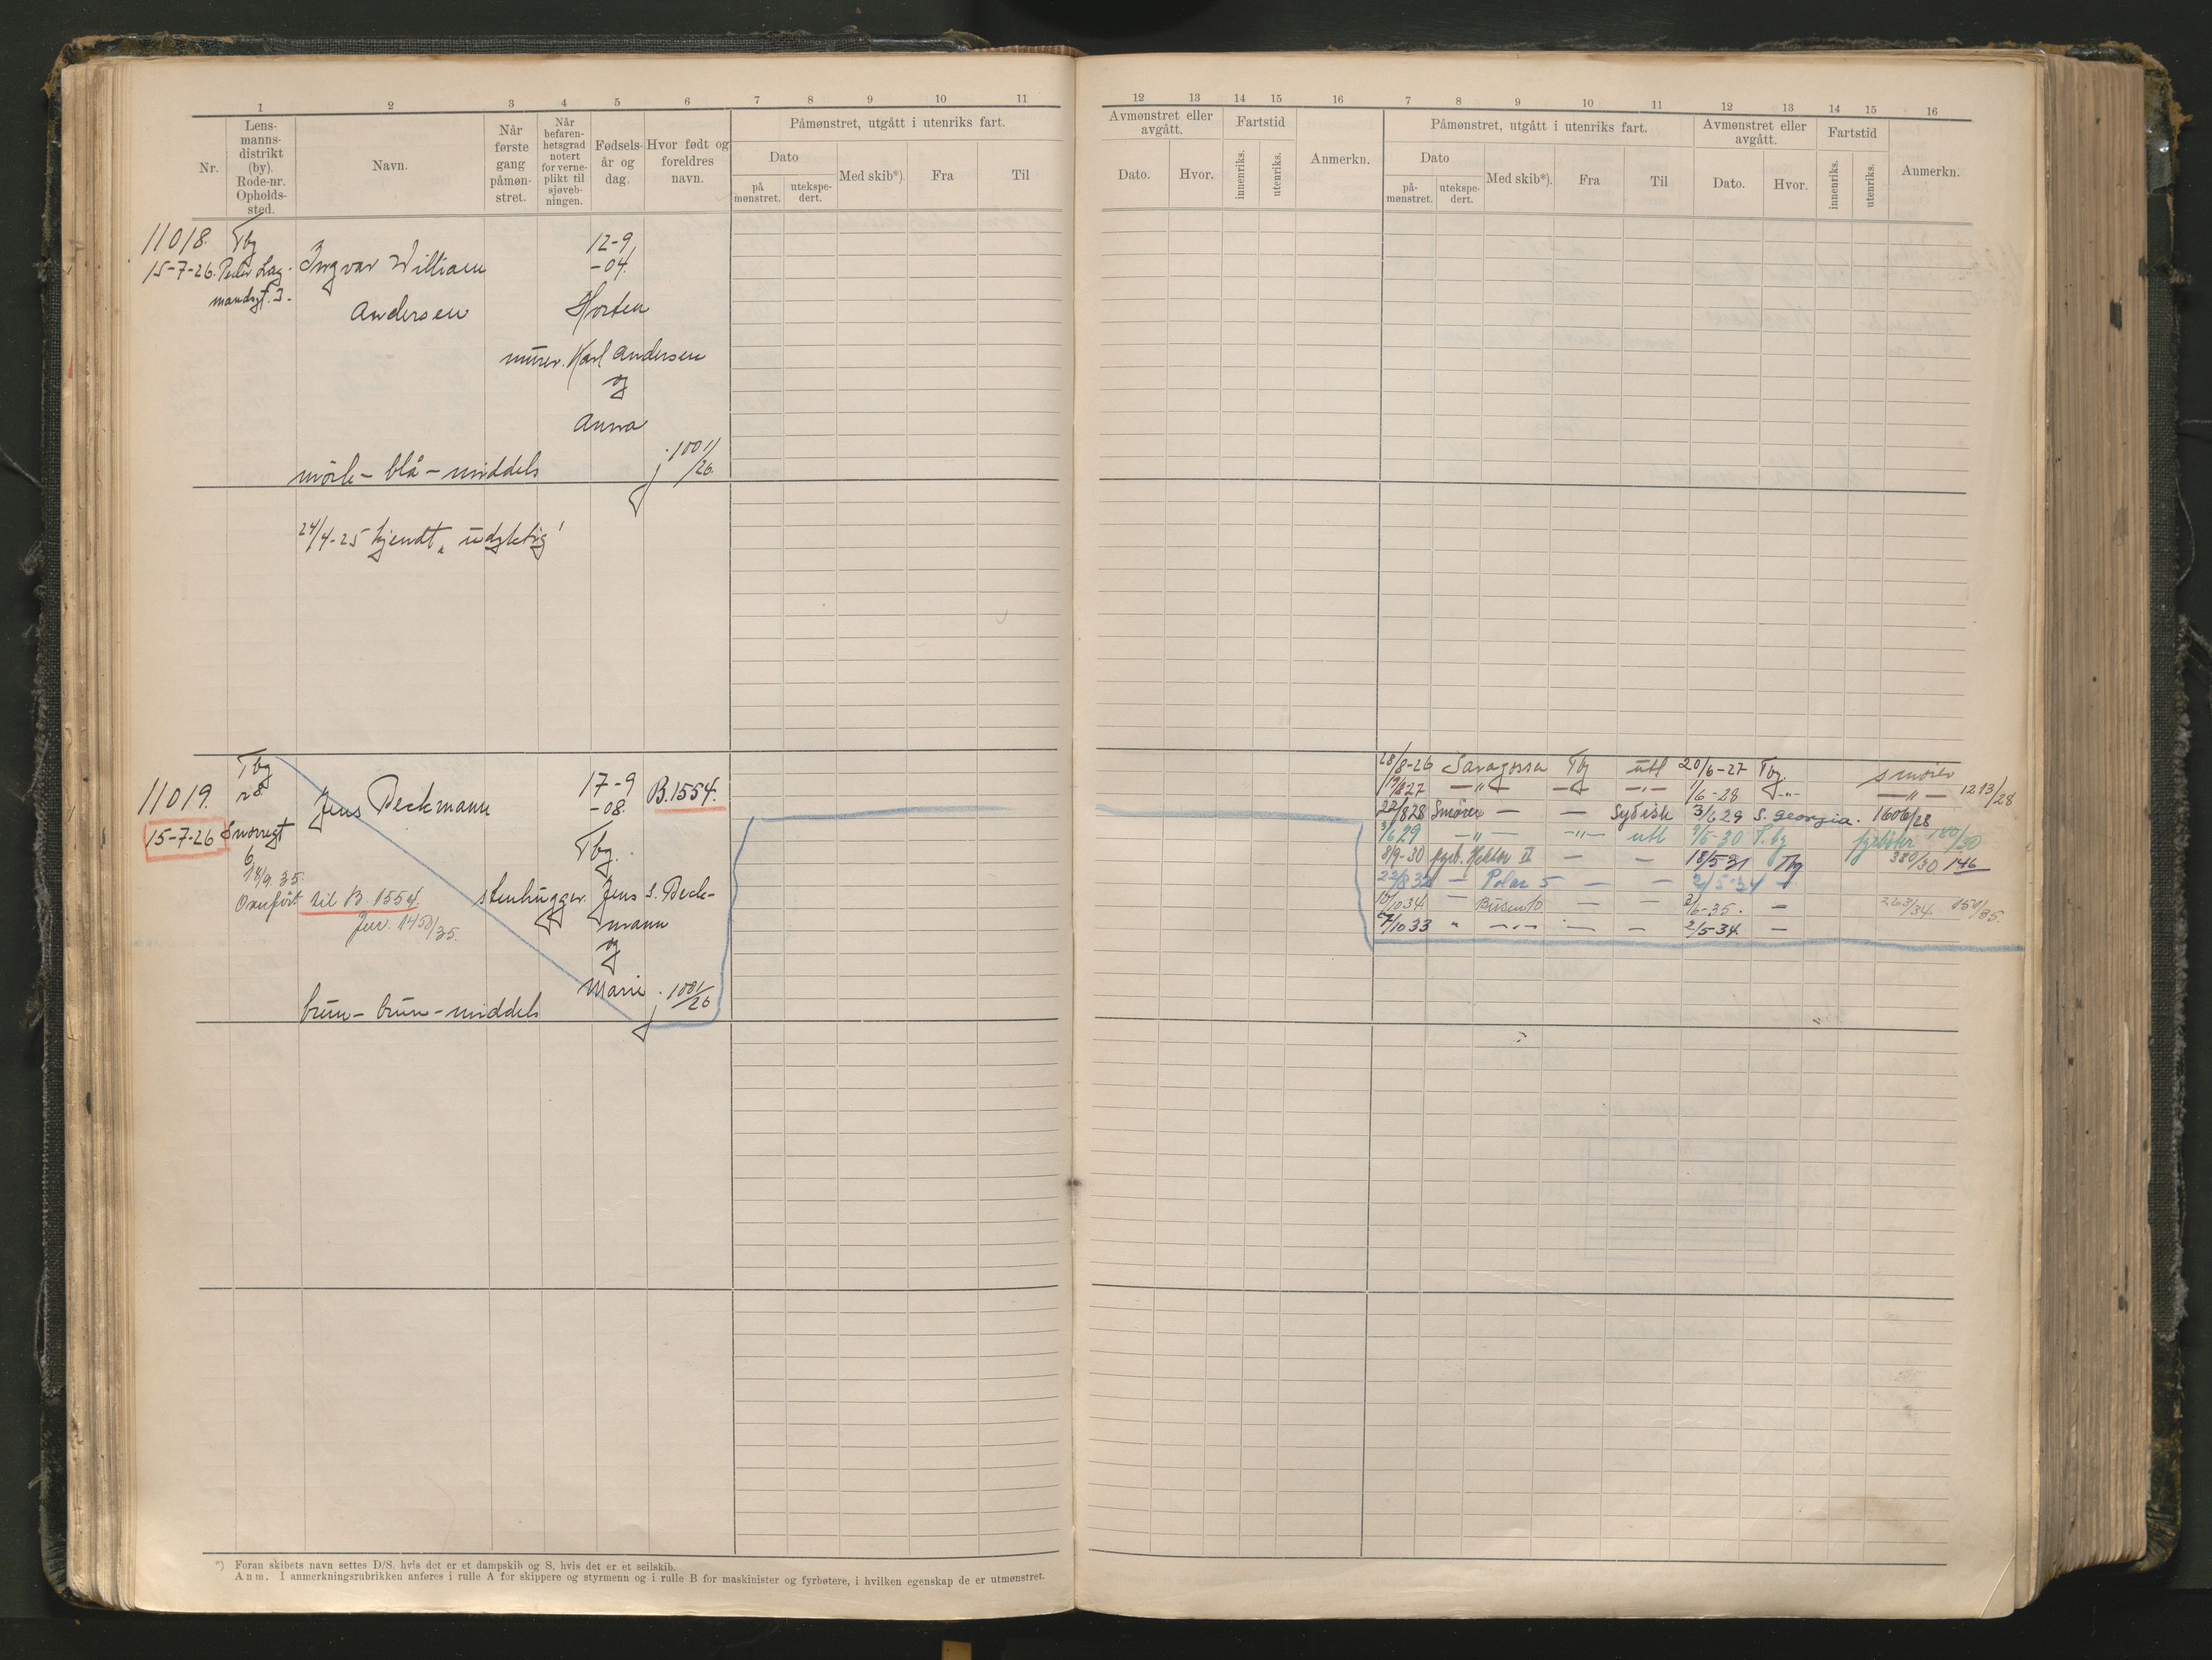 1 2 3 4 5 6 7 8 9 10 11
Nr.
Lens-
manns-
distrikt
(by).
Rode-nr.
Opholds-
sted.
Navn.
Når
første
gang
påmøn-
stret.
Når
befaren-
hetsgrad
notert
for verne-
plikt til
sjøveb-
ningen.
Fødsels-
år og
dag.
Hvor født og
foreldres
navn.
Påmønstret, utgått i utenriks fart.
Dato
på
mønstret.
utekspe-
dert.
Med skib*).
Fra
Til
11018. Tbg
15-7-26. Peder Lag-
mandsgt. 3.
Ingvar William
Andersen
12-9
-04.
Horten
murer. Karl Andersen
og
Anna
j. 1001/26.
mörk - blå - middels
24/4-25 kjendt „udyktig"
11019.
15-7-26
Tbg
r 8.
Snorresgt
6
18/9 35.
Overført til B. 1554.
Jur. 1450/35.
Jens Beckmann
17-9
-08.
B.1554.
Tbg.
stenhugger. Jens S. Beck-
mann
og
Marie
j. 1001/26
brun - brun - middels
*) Foran skibets navn settes D/S, hvis det er et dampskib og S, hvis det er et seilskib.
Anm. I anmerkningsrubrikken anføres i rulle A for skippere og styrmenn og i rulle B for maskinister og fyrbøtere, i hvilken egenskap de er utmønstret.
12 13 14 15 16 7 8 9 10 11 12 13 14 15 16
Avmønstret eller
avgått.
Dato.
Hvor.
Fartstid
innenriks.
utenriks.
Anmerkn.
Påmønstret, utgått i utenriks fart.
Dato
på-
mønstret.
utekspe-
dert.
Med skib*).
Fra
Til
Avmønstret eller
avgått.
Dato.
Hvor.
Fartstid
innenriks.
utenriks.
Anmerkn.
28/8-26 Saragossa Tbg utl 20/6-27 Tbg. smører
19/8 27 — „ — — „ — — „ — 1/6-28 — „ — — „ — 1213/28
22/8 28 Smører — — Sydish 3/6 29 S. Georgia. 1606/28
3/6 29 — „ — — „ — utl 9/5-30 T.bg fyrbøter 180/30
8/9-30 fyrb. Hektor II — — 18/5 31 Tbg 380/30 146
22/8 32 — Polar 5 — — 2/5-34 —
10/10 34. — Busen 10 — — 2/6-35. — 263/34. 151/35.
7/10 33 „ — „ — — — 2/5-34 —